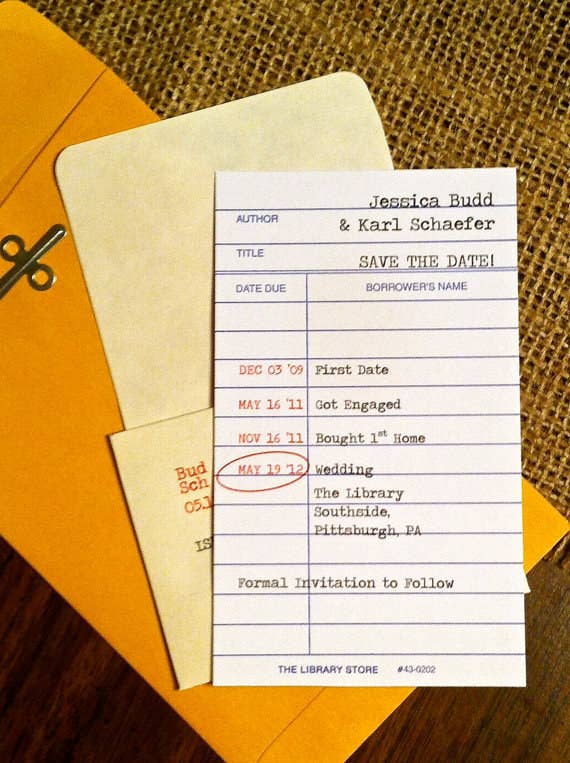 Jessica Budd
AUTHOR & Karl Schaefer
TITLE SAVE THE DATE!
DATE DUE BORROWER'S NAME
DEC 03 '09 First Date
MAY 16 '11 Got Engaged
NOV 16 '11 Bought 1st Home
MAY 19 '12 Wedding
The Library
Southside,
Pittsburgh, PA
Formal Invitation to Follow
THE LIBRARY STORE #43-0202
Bud
Sch
05.1